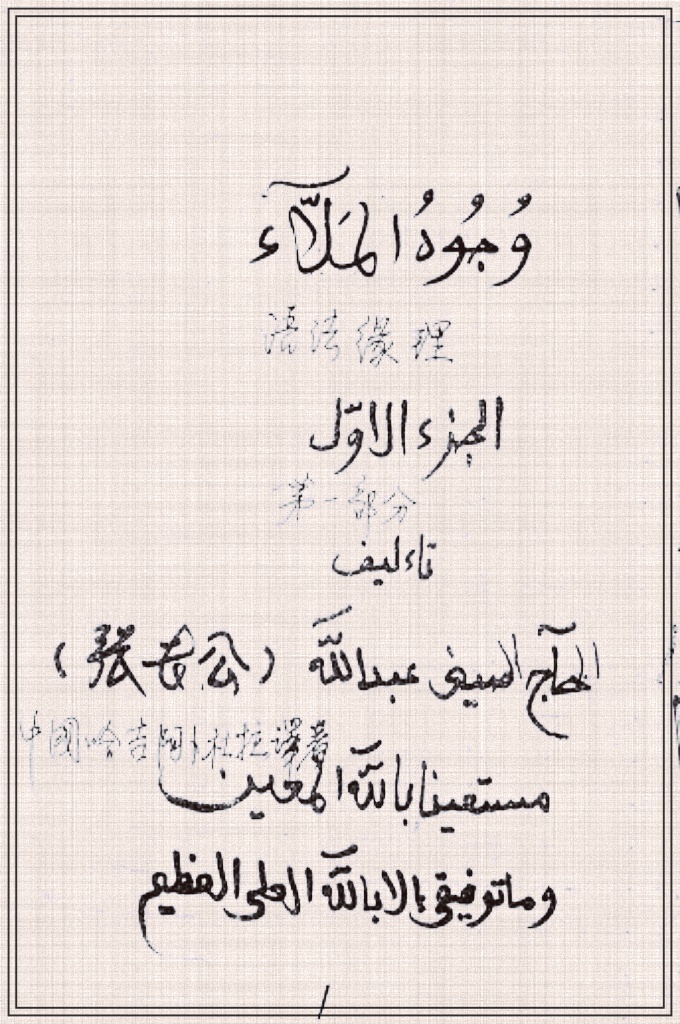 وُجُوهُ المَلَآّء
语法缘理
الجزء الاوّل
第一部分
تاءليف
الحآج الصينى عبدالله (張老公)
中国哈吉阿卜杜拉译著
مستعينا بالله المعين
وماتوفيقى الا بالله العلى العظيم
1